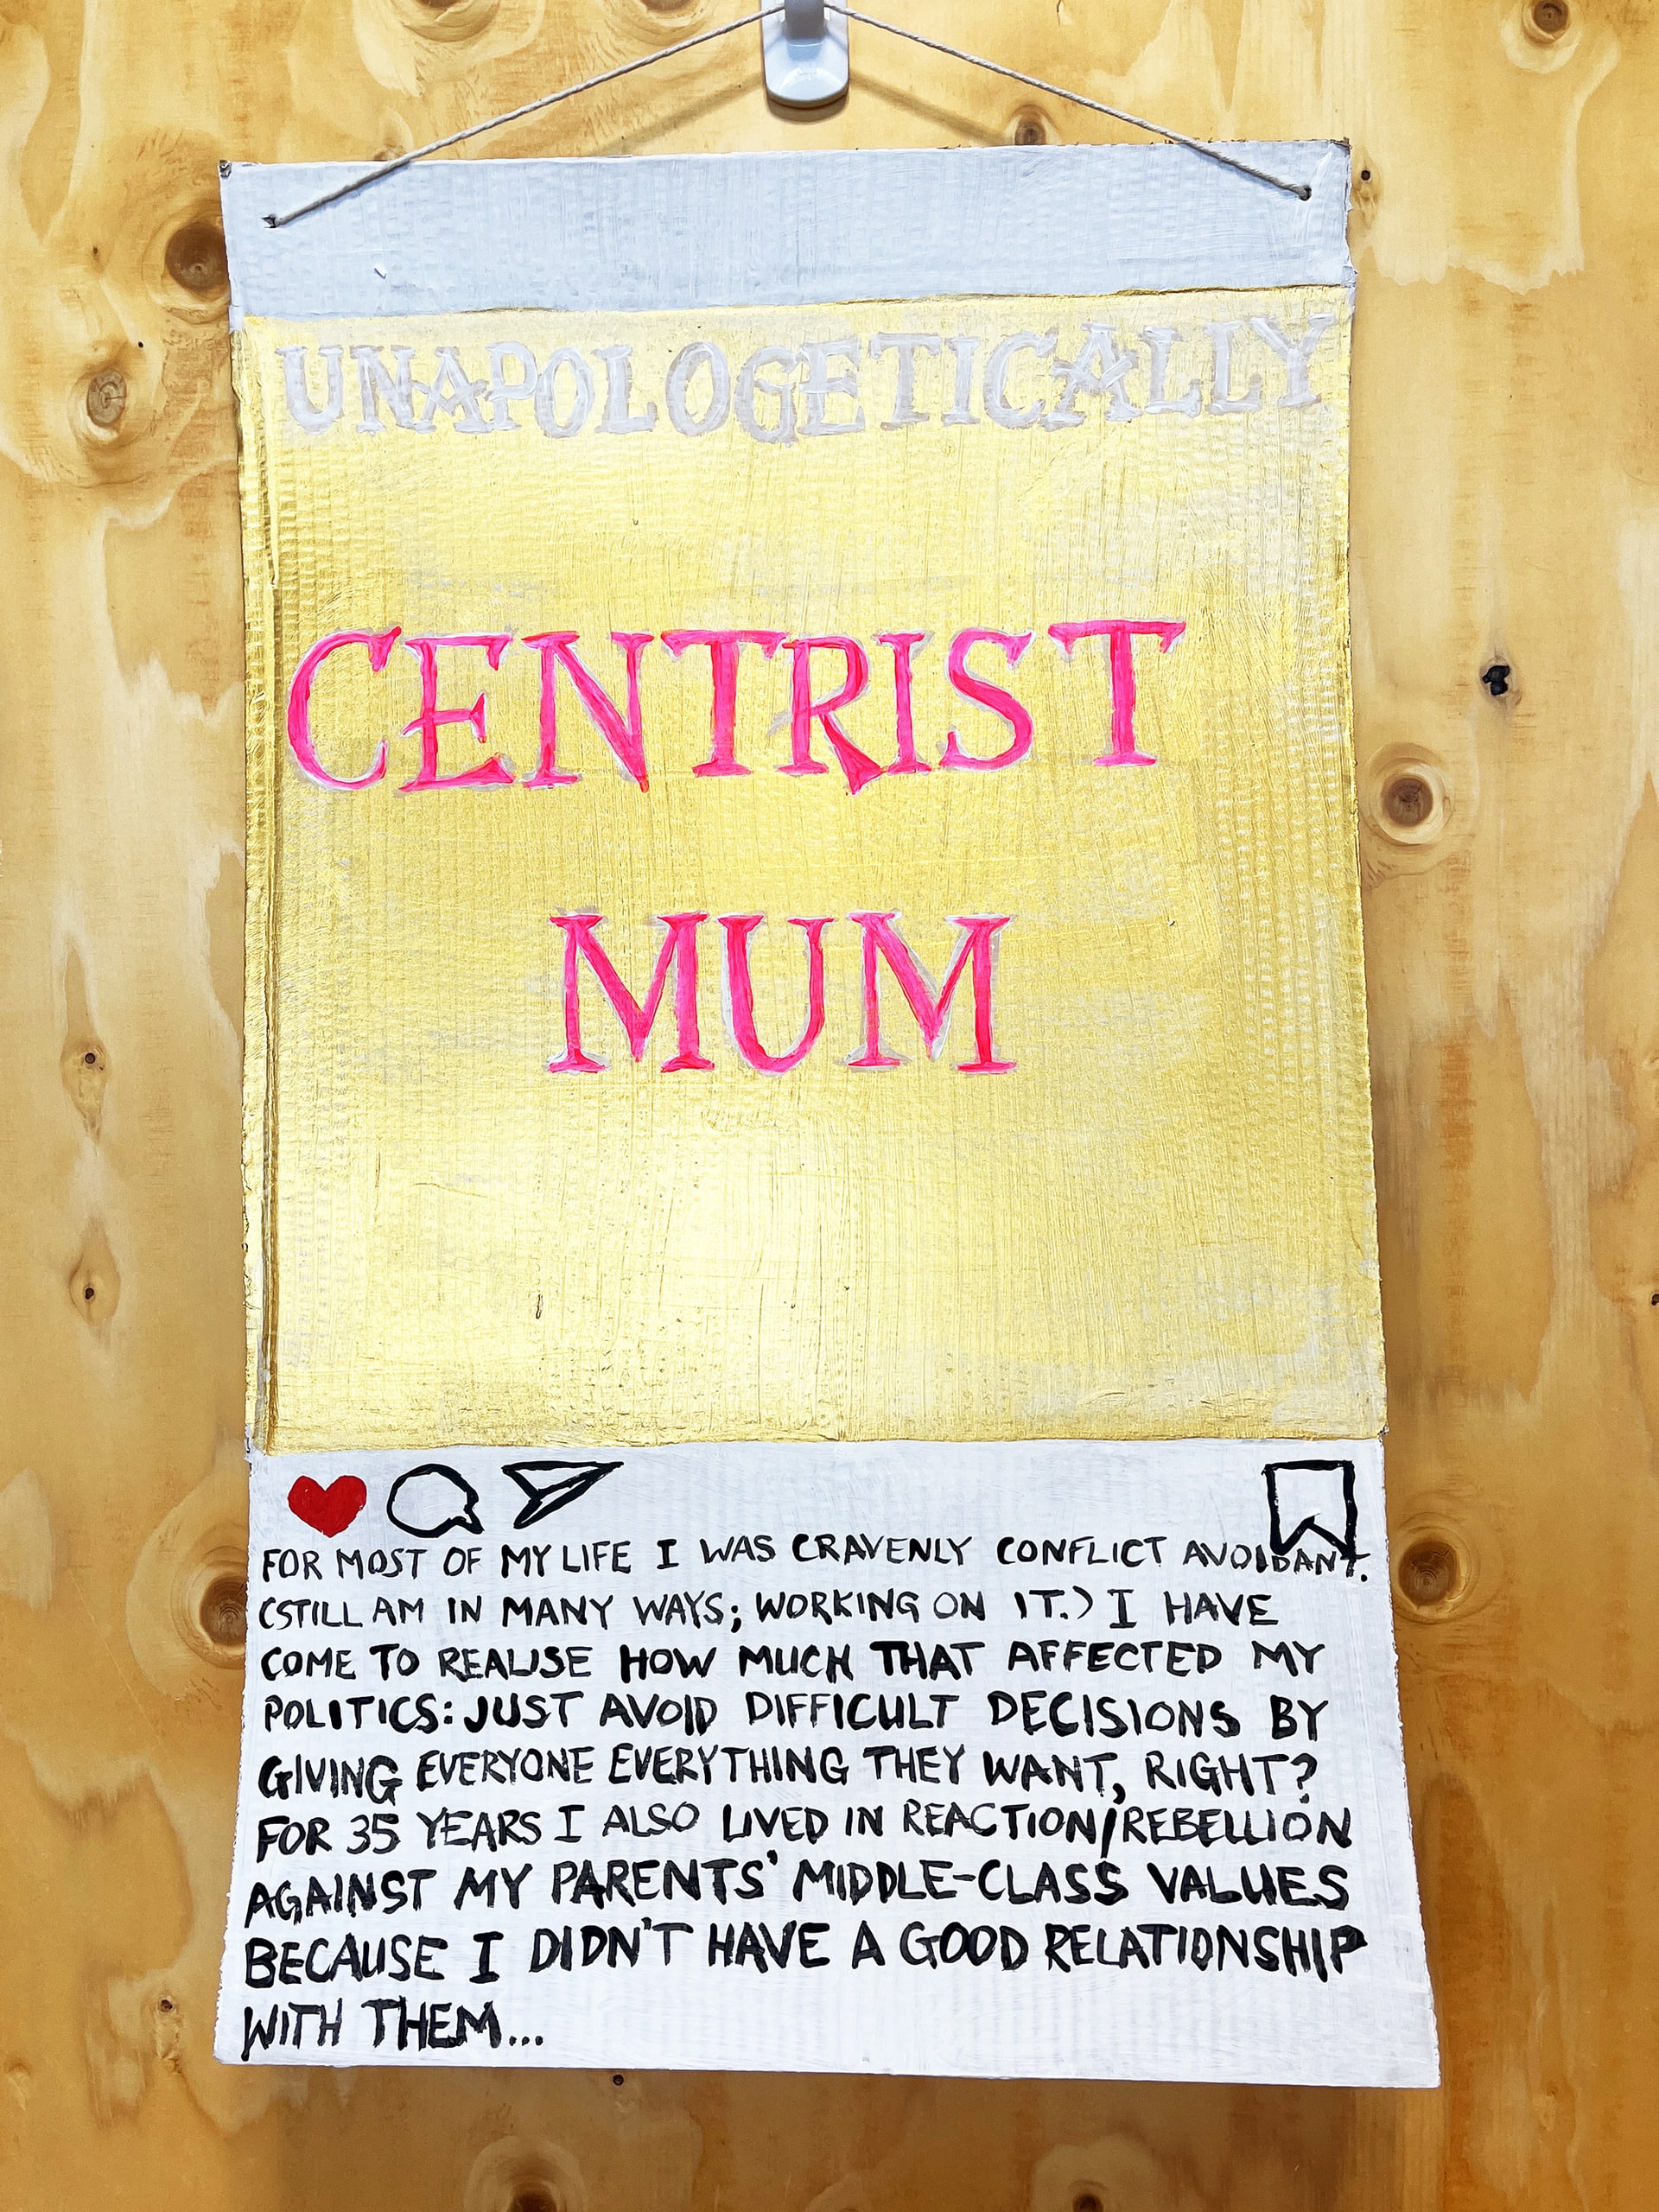 UNAPOLOGETICALLY
CENTRIST
MUM
FOR MOST OF MY LIFE I WAS CRAVENLY CONFLICT AVOIDANT.
(STILL AM IN MANY WAYS; WORKING ON IT.) I HAVE
COME TO REALISE HOW MUCH THAT AFFECTED MY
POLITICS: JUST AVOID DIFFICULT DECISIONS BY
GIVING EVERYONE EVERYTHING THEY WANT, RIGHT?
FOR 35 YEARS I ALSO LIVED IN REACTION/REBELLION
AGAINST MY PARENTS' MIDDLE-CLASS VALUES
BECAUSE I DIDN'T HAVE A GOOD RELATIONSHIP
WITH THEM...